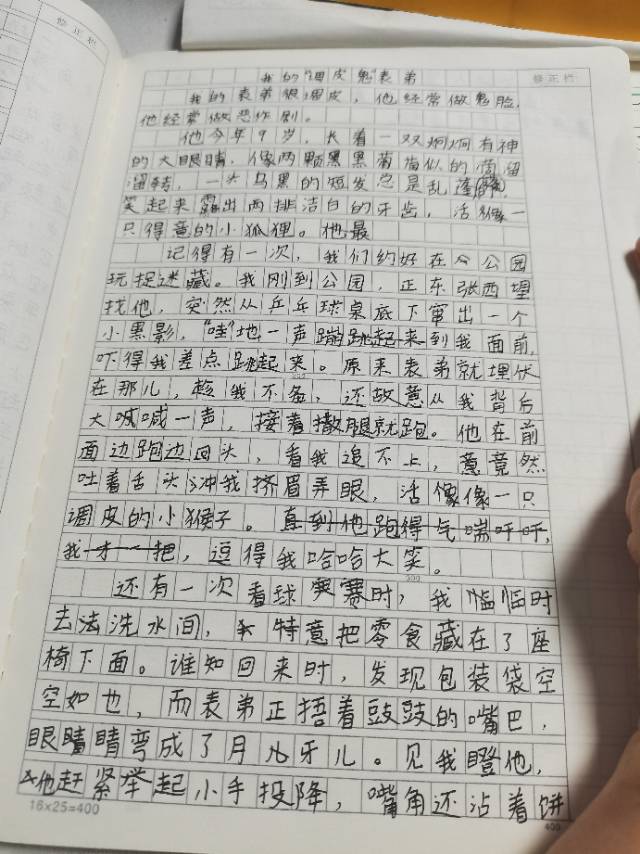 修正栏
修正栏
我的"调皮鬼"表弟
我的表弟很调皮，他经常做鬼脸，
他经常做恶作剧。
他今年9岁，长着一双炯炯有神
的大眼睛，像两颗黑黑葡萄似的滴溜
溜转，一头乌黑的短发总是乱蓬蓬，
笑起来露出两排洁白的牙齿，活像一
只得意的小狐狸。他最
记得有一次，我们约好在公园
玩捉迷藏。我刚到公园，正东张西望
找他，突然从乒乓球桌底下窜出一个
小黑影，"哇"地一声蹦跳起来到我面前，
吓得我差点跳起来。原来表弟就埋伏
在那儿，趁我不备，还故意从我背后
大喊喊一声，接着撒腿就跑。他在前
面边跑边回头，看我追不上，竟然
吐着舌头冲我挤眉弄眼，活像像一只
调皮的小猴子。直到他跑得气喘吁吁，
我才一把，逗得我哈哈大笑。
500
还有一次看球赛时，我临时
去洗水间，特意把零食藏在了座
椅下面。谁知回来时，发现包装袋空
空如也，而表弟正捂着鼓鼓的嘴巴，
眼睛睛弯成了月儿牙儿。见我瞪他，
他赶紧举起小手投降，嘴角还沾着饼
16×25=400
400